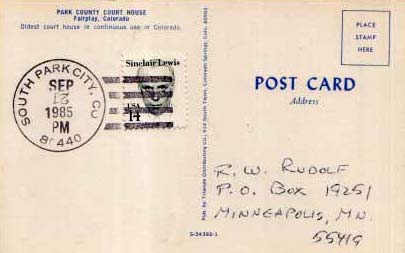 PARK COUNTY COURT HOUSE
Fairplay, Colorado
Oldest court house in continuous use in Colorado.
SOUTH PARK CITY, CO
SEP
1985
PM
80440
Sinclair Lewis
USA
14
PLACE
STAMP
HERE
POST CARD
Address
R.W. RUDOLF
P.O. BOX 19251
MINNEAPOLIS, MN.
55419
Pub. by Triangle Distributing Co., 614 South Tejon, Colorado Springs, Colo. 80902
S-34392-1